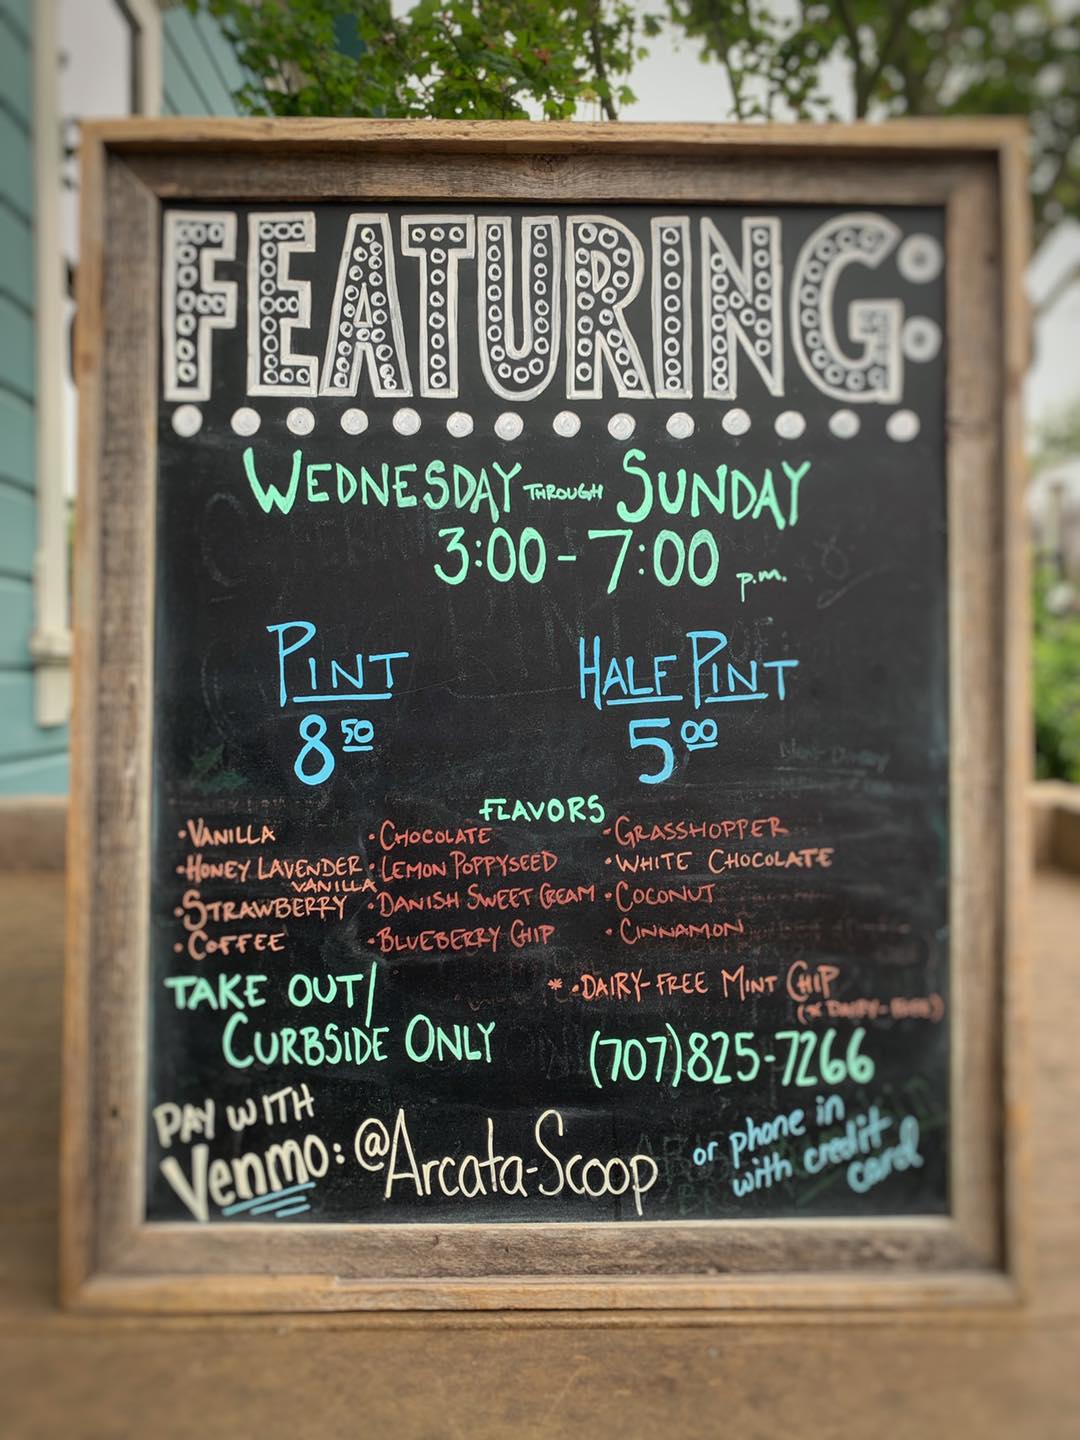 FEATURING:
WEDNESDAY THROUGH SUNDAY
3:00-7:00 p.m.
PINT
8 50
HALF PINT
5 00
FLAVORS
• VANILLA
• HONEY LAVENDER VANILLA
• STRAWBERRY
• COFFEE
• CHOCOLATE
• LEMON POPPYSEED
• DANISH SWEET CREAM
• BLUEBERRY CHIP
• GRASSHOPPER
• WHITE CHOCOLATE
• COCONUT
• CINNAMON
* • DAIRY-FREE MINT CHIP
(* DAIRY-FREE)
TAKE OUT/
CURBSIDE ONLY
(707)825-7266
PAY WITH
Venmo: @Arcata-Scoop
or phone in
with credit
card